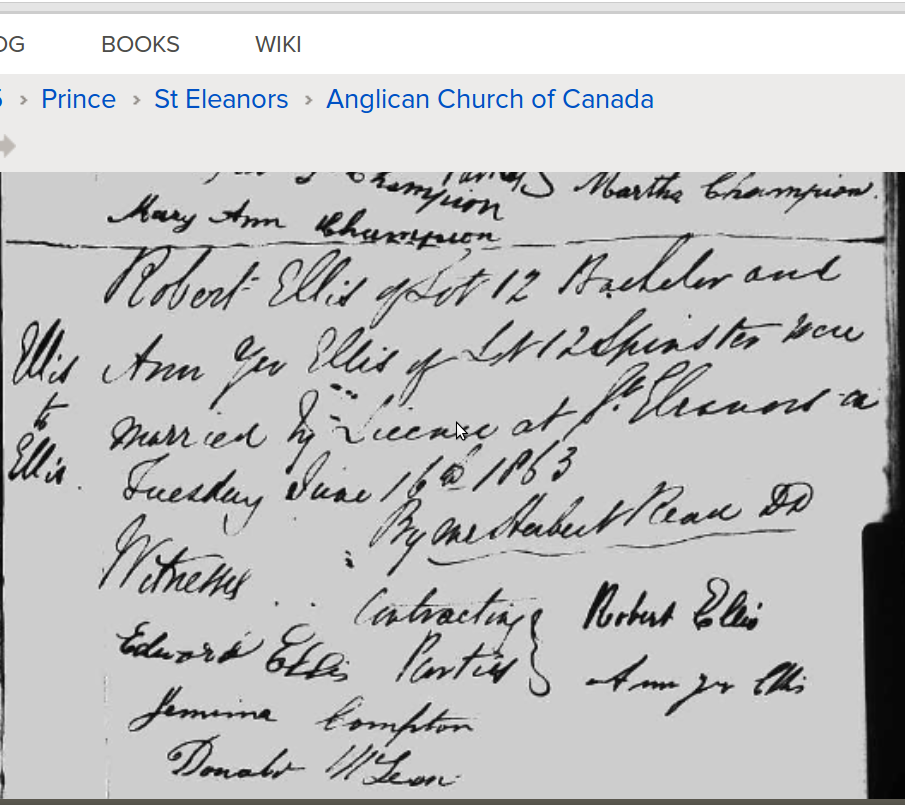 OG BOOKS WIKI
› Prince › St Eleanors › Anglican Church of Canada
Champion Parties Martha Champion.
Mary Ann Champion
Robert Ellis of Lot 12 Bachelor and
Ellis Ann Ellis of Lot 12 Spinster were
to married by License at St. Eleanors on
Ellis. Tuesday June 16th 1863
By me Herbert Read DD
Witnesses
Contracting Robert Ellis
Edward Ellis Parties Ann Ellis
Jemima Compton
Donald McLean